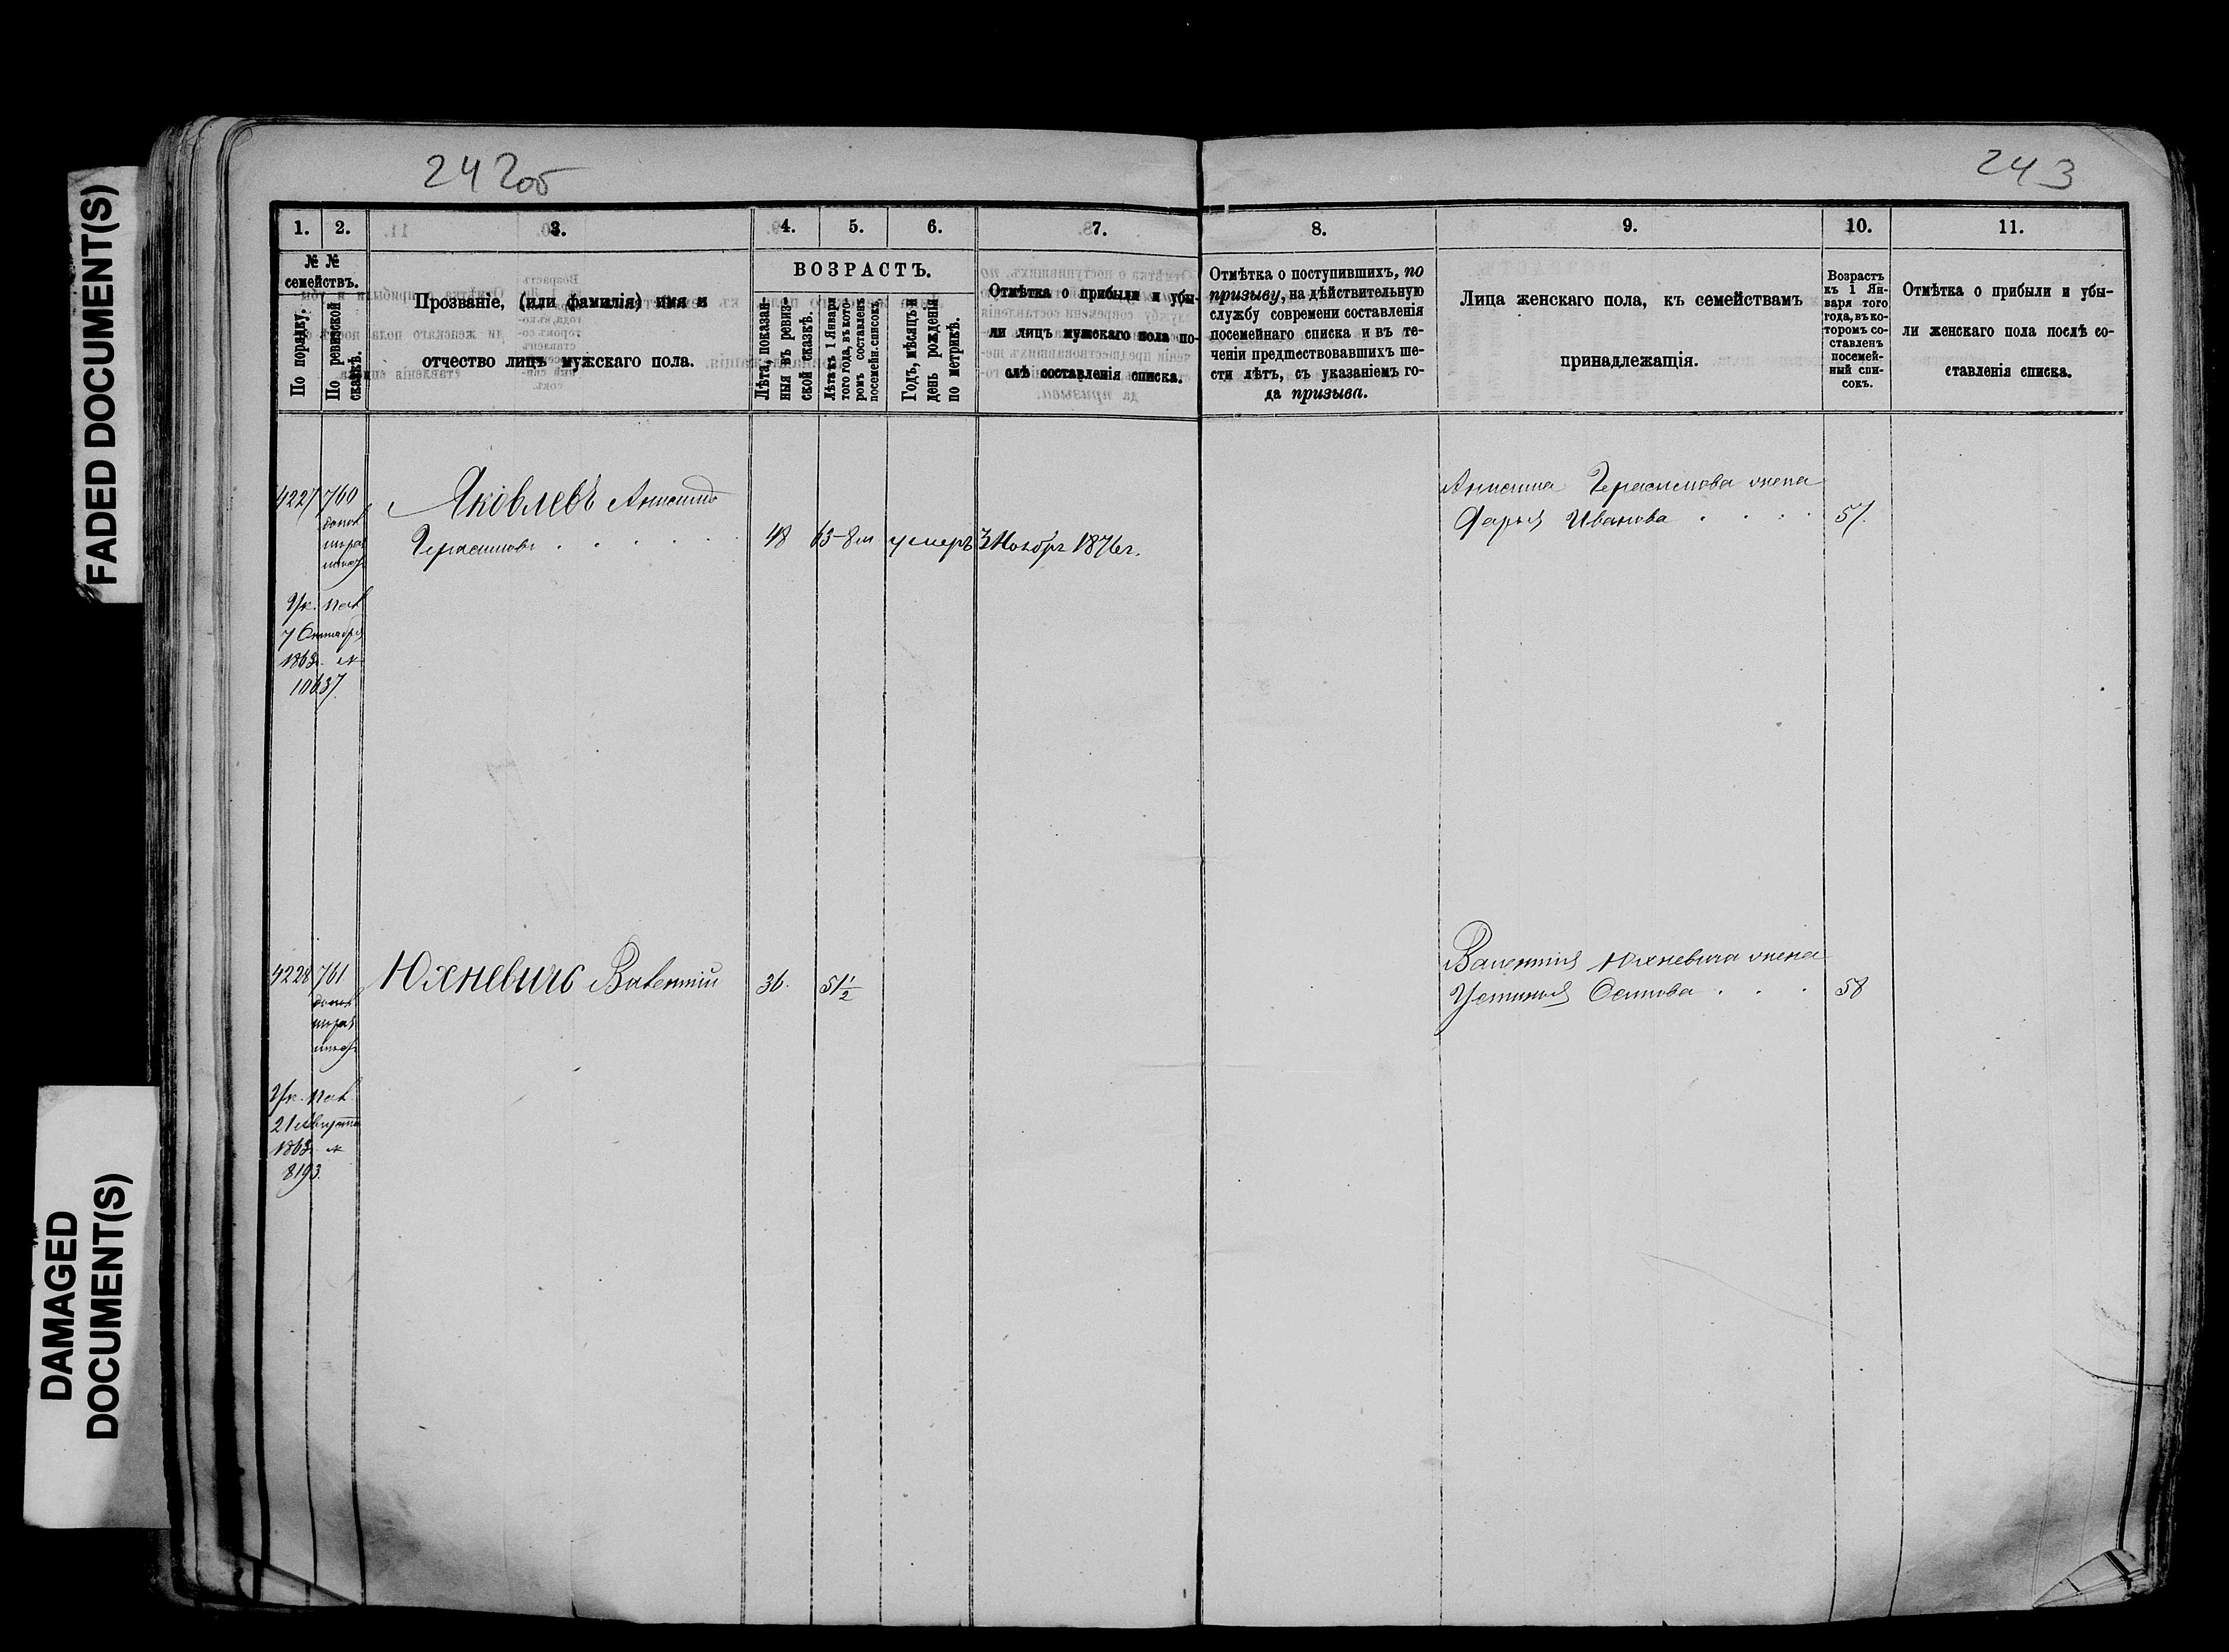 FADED DOCUMENT(S)
DAMAGED
DOCUMENT(S)
242об
243
1.
2.
3.
4.
5.
6.
7.
8.
9.
10.
11.
№ №
семействъ.
По порядку.
По ревизской
сказкѣ.
Прозваніе, (или фамилія) имя и
отчество лицъ мужскаго пола.
ВОЗРАСТЪ.
Лѣта, показан-
ныя въ ревиз-
ской сказкѣ.
Лѣта къ 1 Января
того года, въ кото-
ромъ составленъ
посемейн. списокъ.
Годъ, мѣсяцъ и
день рожденія
по метрикѣ.
Отмѣтка о прибыли и убы-
ли лицъ мужскаго пола по-
слѣ составленія списка.
Отмѣтка о поступившихъ, по
призыву, на дѣйствительную
службу современи составленія
посемейнаго списка и въ те-
ченіи предшествовавшихъ ше-
сти лѣтъ, съ указаніемъ го-
да призыва.
Лица женскаго пола, къ семействамъ
принадлежащія.
Возрастъ
къ 1 Ян-
варя того
года, въ ко-
торомъ со-
ставленъ
посемей-
ный спи-
сокъ.
Отмѣтка о прибыли и убы-
ли женскаго пола послѣ со-
ставленія списка.
4227 760
Ук. пал.
7 Октября
1863 №
10637.
Яковлевъ Анисимъ
Герасимовъ
48
63-8м
умеръ 3 Ноябр 1876г.
Анисима Герасимова жена
Дарья Иванова
57.
4228 761
Ук. пал.
21 Августа
1863 №
8193.
Юхневичъ Валентій
36.
51 1/2
Валентія Юхневича жена
Устинья Осипова
58